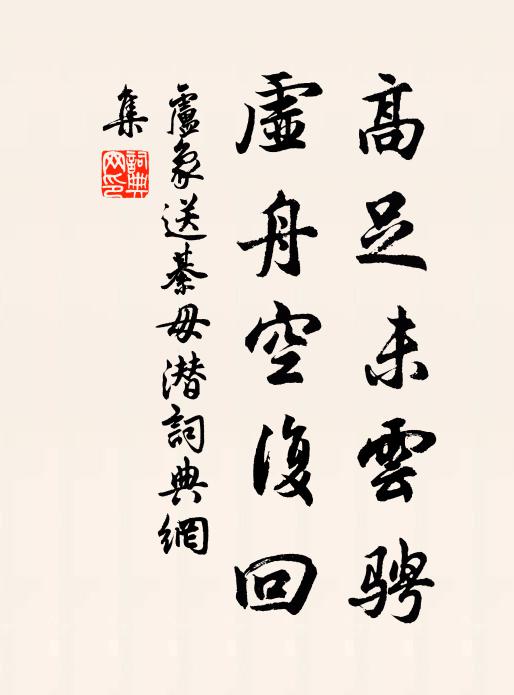 高足未雲騁
虛舟空復回
盧象送綦毋潛詞典網
集
詞典网印